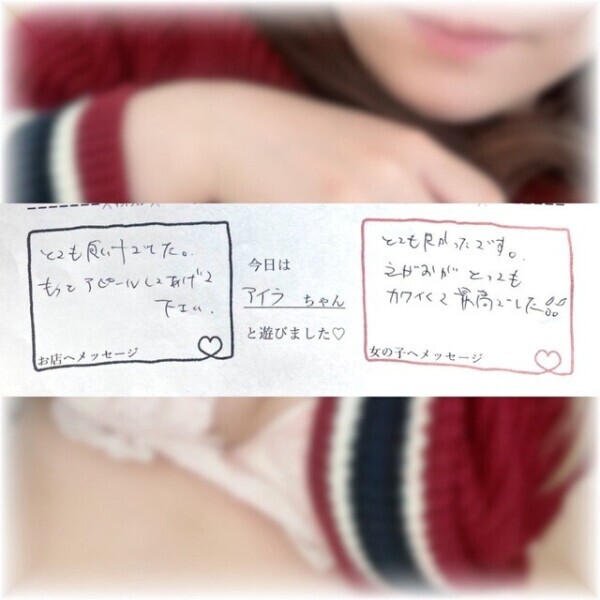 とても良い子でした。
もっとアピールしてあげて
下さい。
お店へメッセージ
今日は
アイラ ちゃん
と遊びました♡
とても良かったです。
えがおが とっても
カワイくて 最高でした!!
女の子へメッセージ